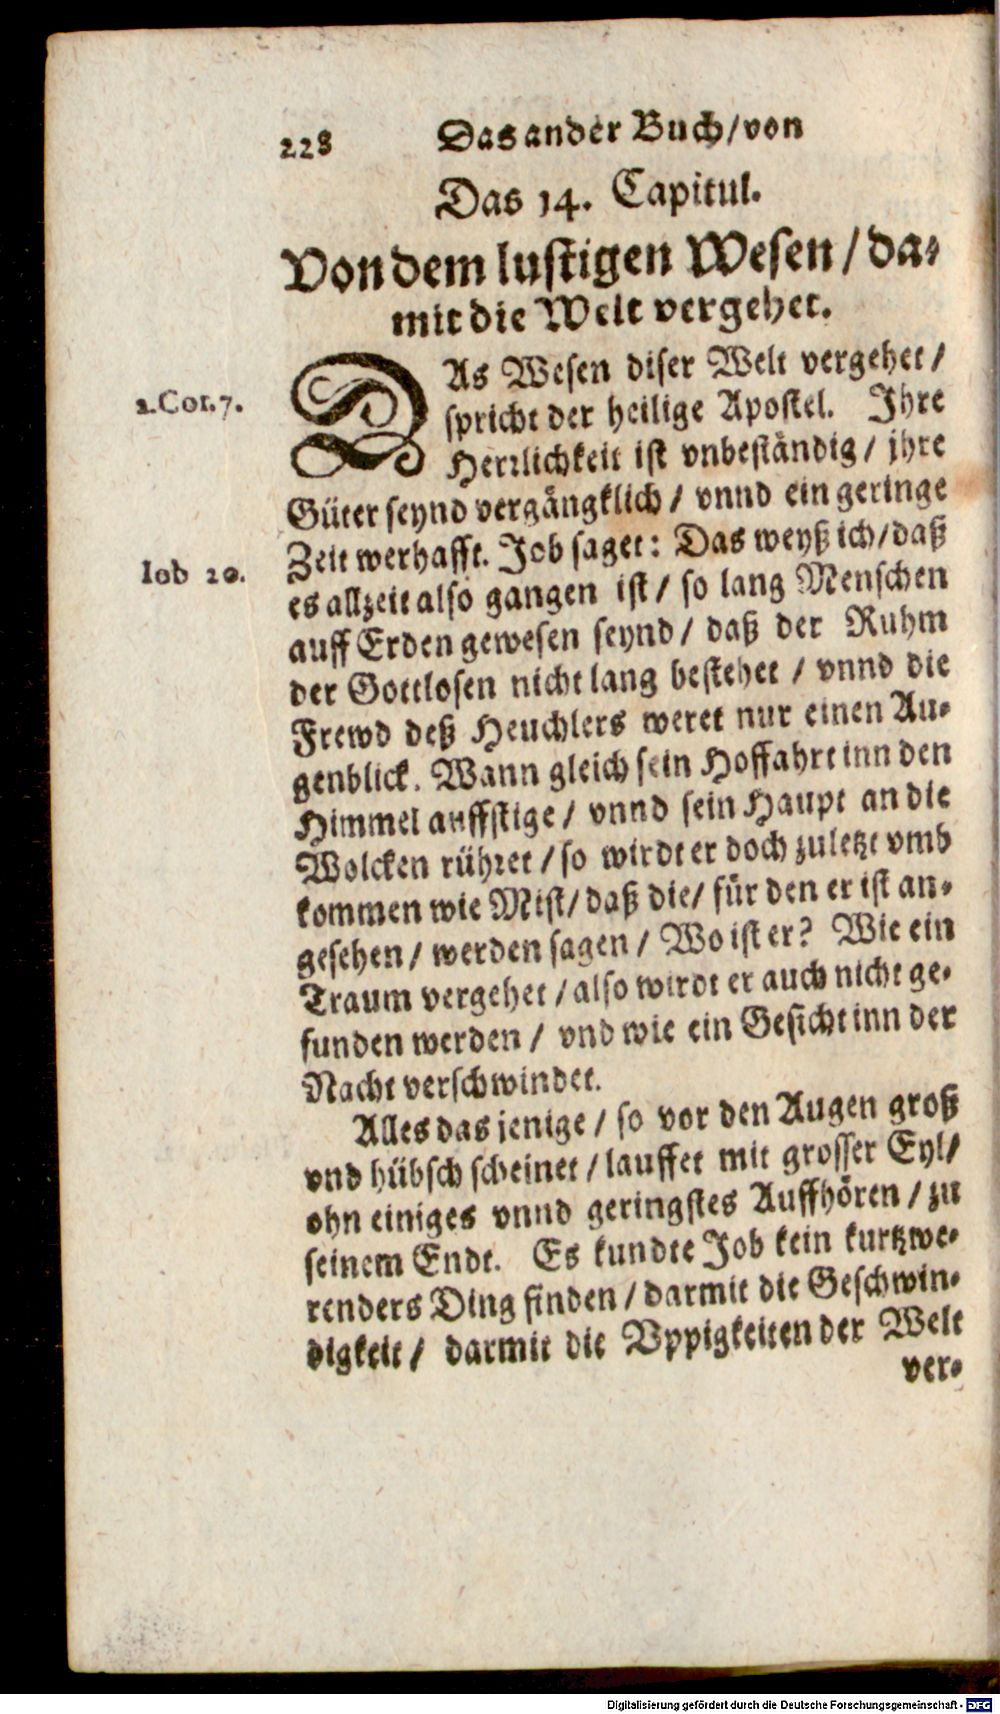 228 Das ander Buch/von
Das 14. Capitul.
Von dem lustigen Wesen / da-
mit die Welt vergehet.
DAs Wesen diser Welt vergehet /
1.Cor.7.
spricht der heilige Apostel. Ihre
Herrlichkeit ist vnbeständig / jhre
Güter seynd vergängklich / vnnd ein geringe
Zeit werhafft. Job saget: Das weyß ich/daß
Iob 20.
es allzeit also gangen ist / so lang Menschen
auff Erden gewesen seynd / daß der Ruhm
der Gottlosen nicht lang bestehet / vnnd die
Frewd deß Heuchlers weret nur einen Au-
genblick. Wann gleich sein Hoffahrt inn den
Himmel auffstige / vnnd sein Haupt an die
Wolcken rühret / so wirdt er doch zuletzt vmb
kommen wie Mist/ daß die/ für den er ist an-
gesehen / werden sagen / Wo ist er? Wie ein
Traum vergehet / also wirdt er auch nicht ge-
funden werden / vnd wie ein Gesicht inn der
Nacht verschwindet.
Alles das jenige / so vor den Augen groß
vnd hübsch scheinet / lauffet mit grosser Eyl/
ohn einiges vnnd geringstes Auffhören / zu
seinem Endt. Es kundte Job kein kurtzwe-
renders Ding finden / darmit die Geschwin-
digkeit / darmit die Vppigkeiten der Welt
ver-
Digitalisierung gefördert durch die Deutsche Forschungsgemeinschaft - DFG